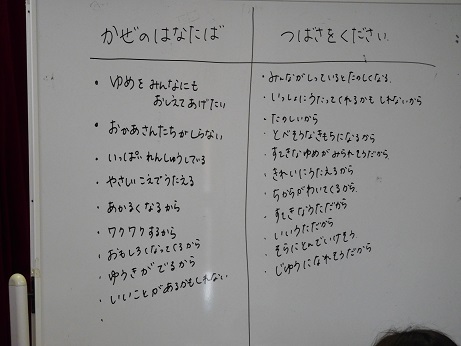 かぜのはなたば
・ゆめをみんなにも
おしえてあげたい
・おかあさんたちがしらない
・いっぱいれんしゅうしている
・やさしいこえでうたえる
・あかるくなるから
・ワクワクするから
・おもしろくなってくるから
・ゆうきがでるから
・いいことがあるかもしれない
・
つばさをください
・みんながしっているとたのしくなる
・いっしょにうたってくれるかもしれないから
・たのしいから
・とべそうなきもちになるから
・すてきなゆめがみられそうだから
・きれいにうたえるから
・ちからがわいてくるから
・すてきなうただから
・いいうただから
・そらにとんでいけそう
・じゆうになれそうだから